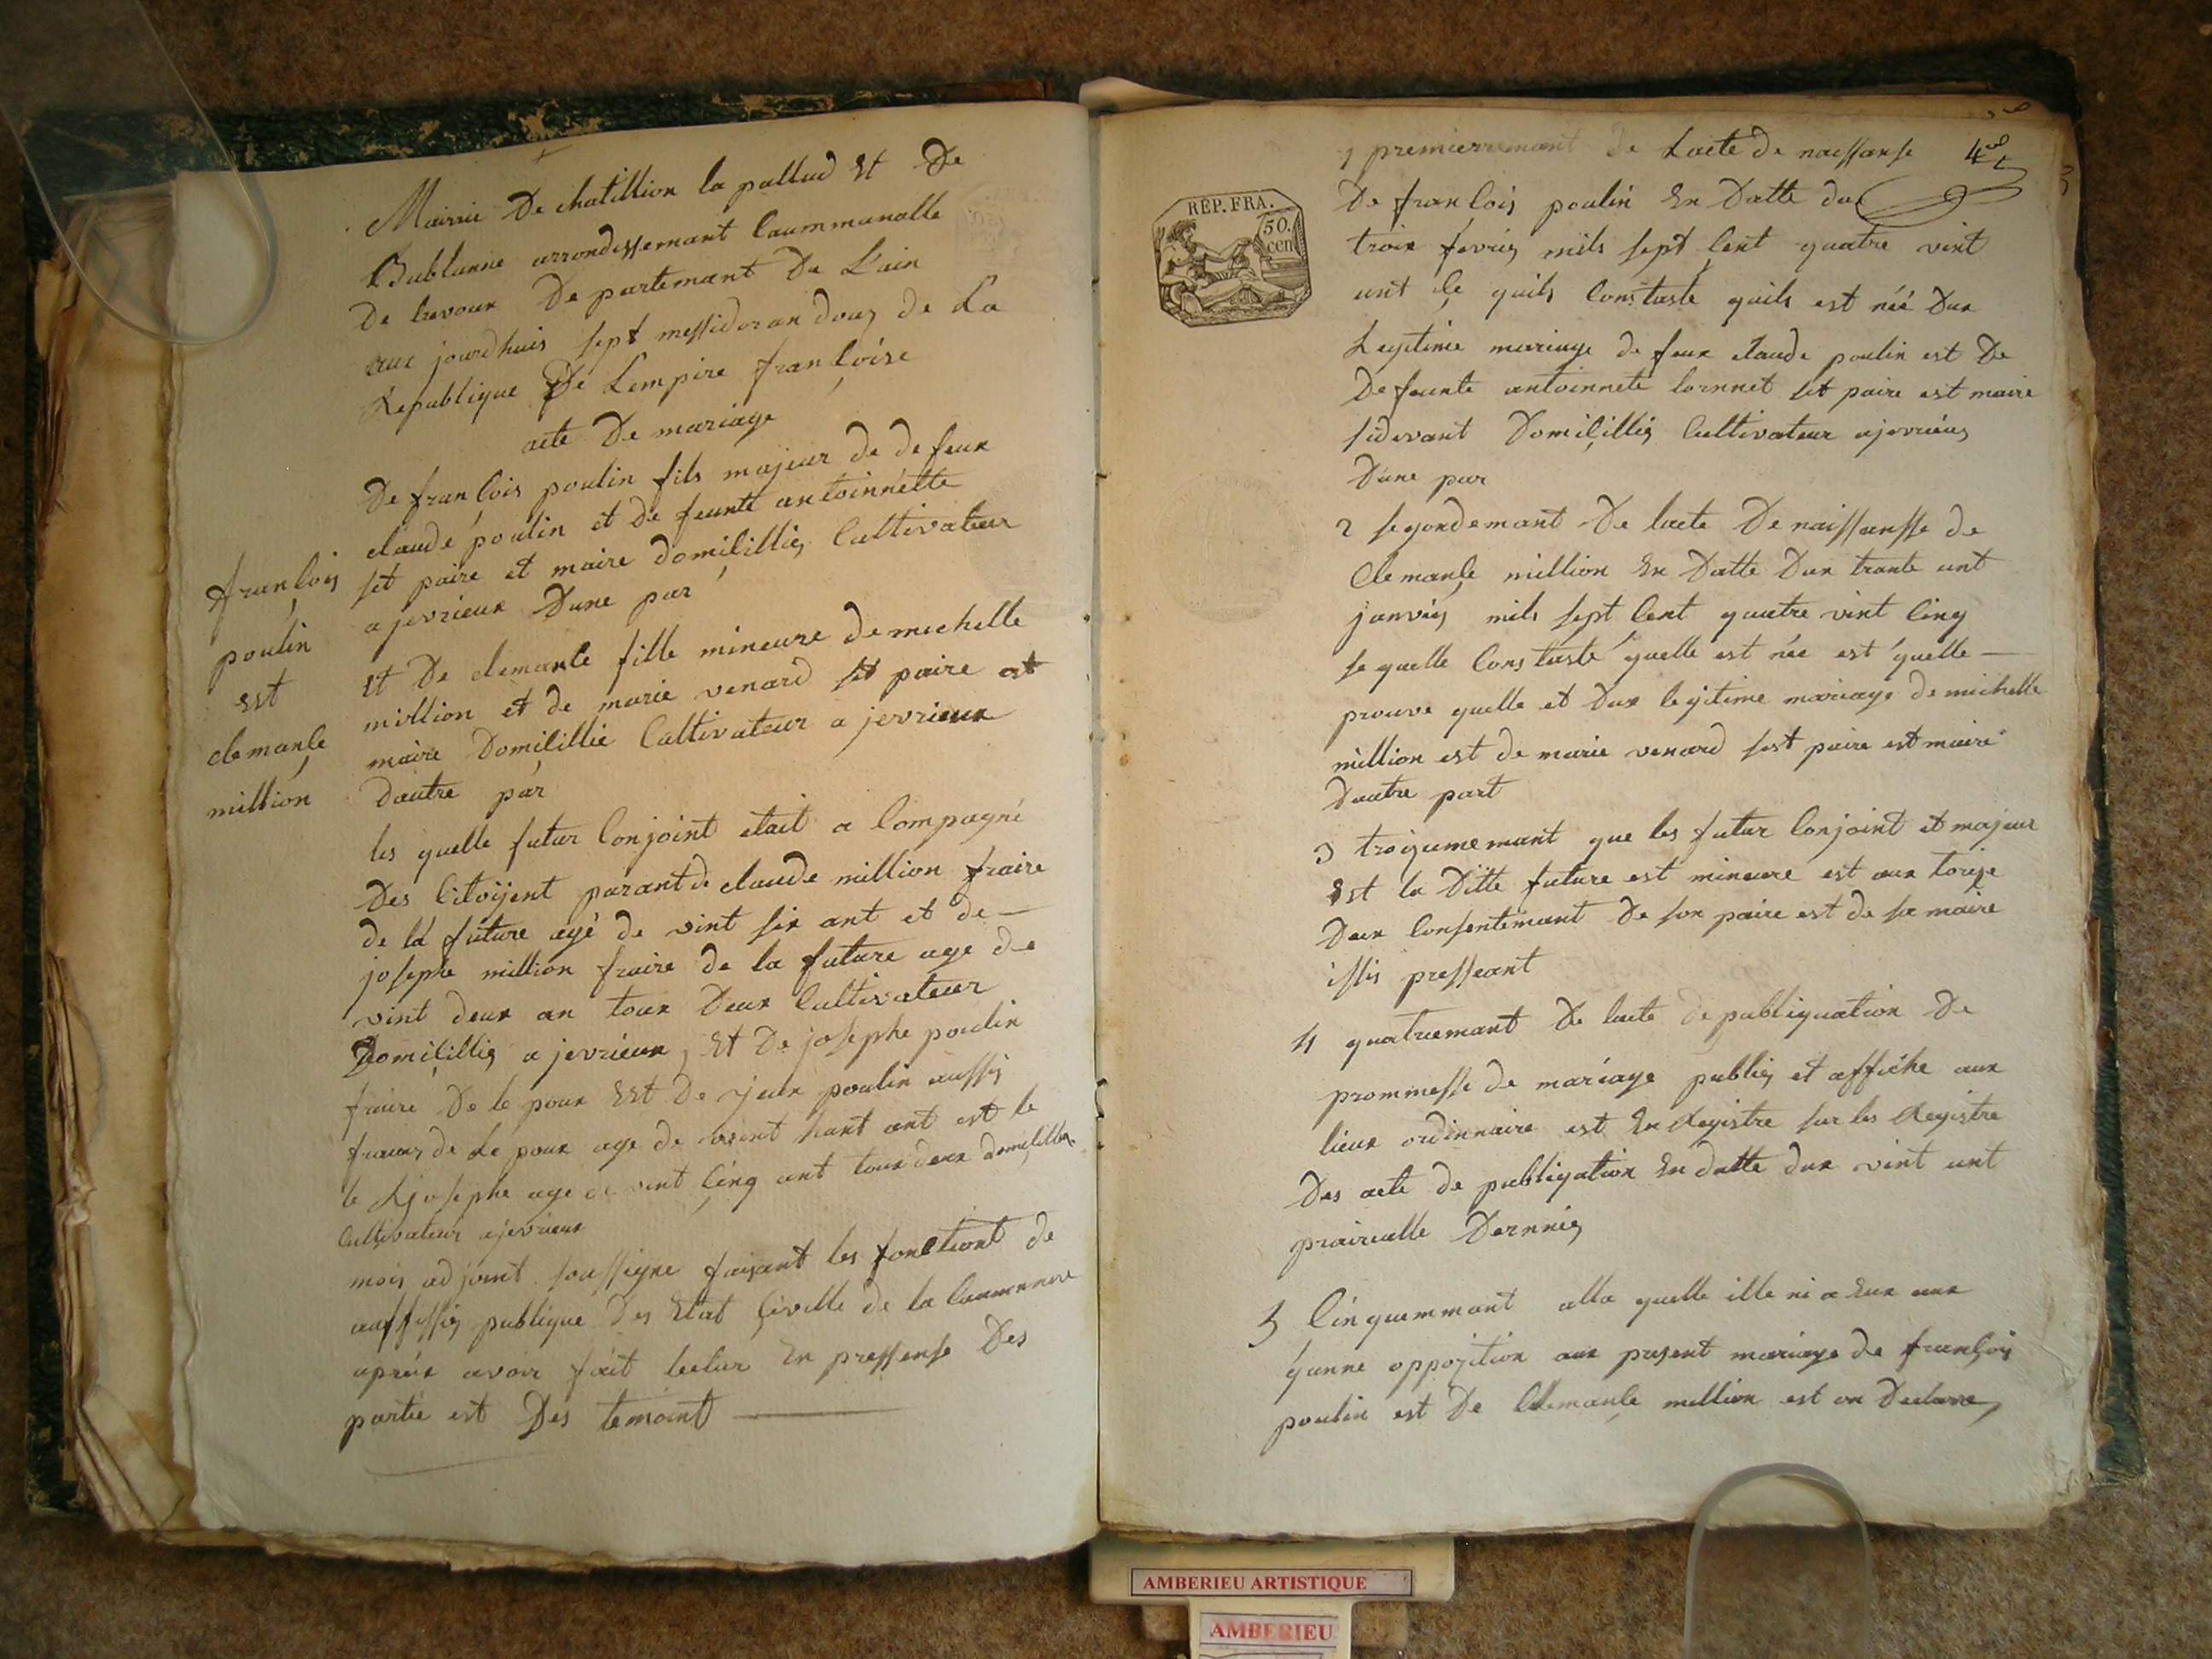 Mairie De chatillion la pallud Et De
Bublanne arrondissemant Caummunalle
De trevoux De partemant De L'ain
aux jourdhuis sept messidor an douz de La
Republique De Lempire françoise
acte De mariage
De françois poulin fils majeur de defeux
claude poulin et de feunte antoinnette
set paire et maire domiçilliez Cultivateur
a jevrieux Dune par
Et De clemance fille mineure de mechelle
million et de marie venard set paire et
maire Domicillie Cultivateur a jevrieux
dautre par
françois
poulin
Est
clemançe
million
les quelle futur Conjoint etait a Compagné
Des Citoÿent parant de claude million fraire
de la future agé de vint six ant et de
josephe million fraire de la future age de
vint deux an toux Deux Cultivateur
Domiçilliez a jevrieux, Et De josephe poulin
fraire De le poux Est De jean poulin aussy
de Le poux age de ant est le
le josephe age de vint çinq ant toux deux domiçillie
Cultivateur ajevrieux
mois adjoint soussigne faisant les fonctiont de
publique Des Etat çiville de la Caummune
apréx avoir fait lectur En pressense Des
partie est Des temoint
4
1 premierremant De Lacte de naissanse
De françois poulin En Datte du
troix fevriez mils sept Cent quatre vint
unt çe quils Constaste quils est néé Dux
Legitime mariage de feux claude poulin est De
Defeunte antoinnete Cornnet set paire est maire
sidevant Domiçilliez Cultivateur ajevrieux
Dune par
REP. FRA.
50.
cen
2 segondemant De lacte De naissansse de
Clemançe million En Datte Dux trante unt
janviez mils sept Cent quatre vint Cinq
se quelle Constaste quelle est née est quelle
prouve quelle et Dux legitime mariage de michelle
million est de marie venard sest paire est maire
Dautre part
3 troizumemant que les futur Conjoint et majeur
Est la Ditte future est mineure est aux torize
Dux Consentemant De son paire est de sa maire
issis presseant
4 quatruemant De lacte de publiquation De
prommesse de mariage publiez et affiche aux
lieux ordinnaire est En Registre sur les Registre
Des acte de publigation En datte dux vint unt
prairealle Dernniez
5 Cinquemmant alla quelle ille ni a Eux aux
qunne oppozition aux present mariage de françois
poulin est De Clemançe million est on Declare,
AMBERIEU ARTISTIQUE
AMBERIEU